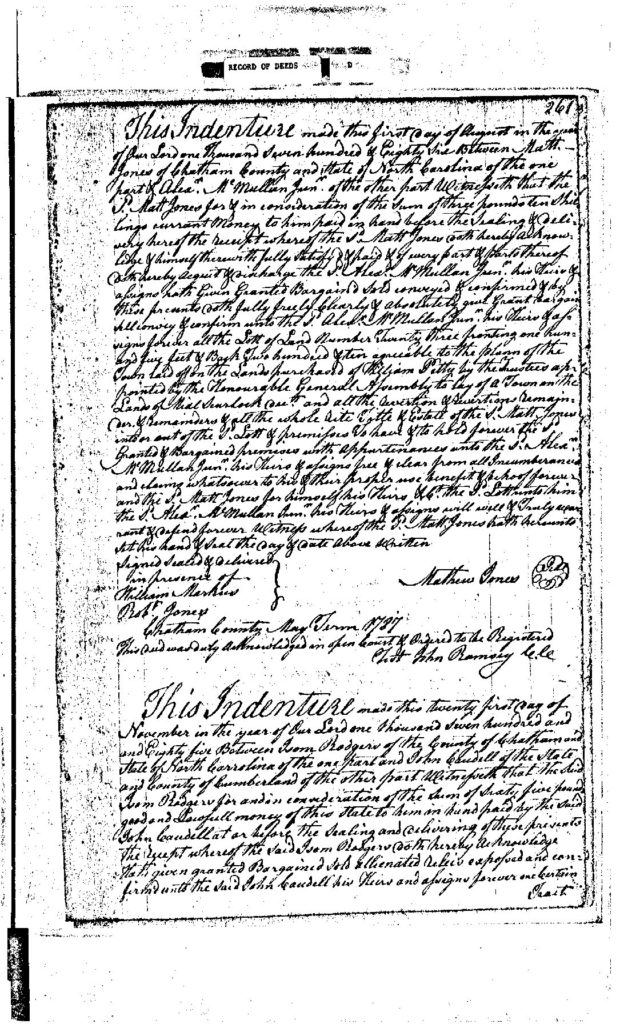 RECORD OF DEEDS D
261
This Indenture made this first day of August in the year
of Our Lord one Thousand Seven hundred & Eighty Six Between Matt.
Jones of Chatham County and State of North Carolina of the one
part & Alexr. McMullan Junr. of the other part Witnesseth that the
Sd. Matt Jones for & in consideration of the Sum of three pounds ten Shil
lings currant Money to him paid in hand before the Sealing & deli
very hereof the receipt whereof the Sd. Matt Jones doth hereby acknow
ledge & himself therewith fully Satisfyd & paid & every part & parts thereof
doth hereby acquit & discharge the Sd. Alexr. McMullan Junr. his Heirs &
assigns hath Given Granted Bargaind Sold conveyed & confirmed & by
these presents doth fully freely Clearly & absolutely give Grant bargain
sell convey & confirm unto the Sd. Alexr. McMullan Junr. his Heirs & as
signs forever all the Lott of Land Number Twenty three fronting one hun
and five feet & Back Two hundred & ten agreeable to the plann of the
Town laid off on the Lands purchased of William Petty by the trustees app
pointed by the Honourable General Assembly to lay of a Town on the
Lands of Mial Scurlock Decd. and all the revertion & Revertions Remain
der & Remainders & all the whole rite Title & Estate of the Sd. Matt Jones
into or out of the Sd. Lott & premisses To have & to hold forever the Sd.
Granted & Bargained premises with appurtenances unto the Sd. Alexr.
McMullan Junr. his Heirs & assigns free & clear from all Incumberances
and claims whatsoever to his & their proper use benefit & behoof forever
and the Sd. Matt Jones for himself his Heirs & Ca. the Sd. Lott unto him
the Sd. Alexr. McMullan Junr. his Heirs & assigns will well & Truly war
rant & defend forever Witness where of the Sd. Matt Jones hath hereunto
Set his hand & Seal the day & date above written
Signed Sealed & delivered
in presence of
Mathew Jones Seal
William Markus
Robt. Jones
Chatham County May Term 1787
This deed was duty acknowledged in open Court & Ordered to be Registered
Test John Ramsey C.C.
This Indenture made this twenty first day of
November in the year of Our Lord one thousand Seven hundred and
and Eighty five Between Isom Rodgers of the County of Chatham and
State of North Carrolina of the one part and John Caudell of the State
and County of Cumberland of the other part Witnesseth that the Said
Isom Rodgers for and in consideration of the Sum of Sixty five pound
good and Lawfull money of this State to him in hand paid by the Said
John Caudell at or before the Sealing and delivering of these presents
the recept whereof the Said Isom Rodgers doth hereby acknowledge
hath given granted Bargained Sold allienated Releis exposed and con-
firmd unto the Said John Caudell his Heirs and assigns forever one Certain
Tract